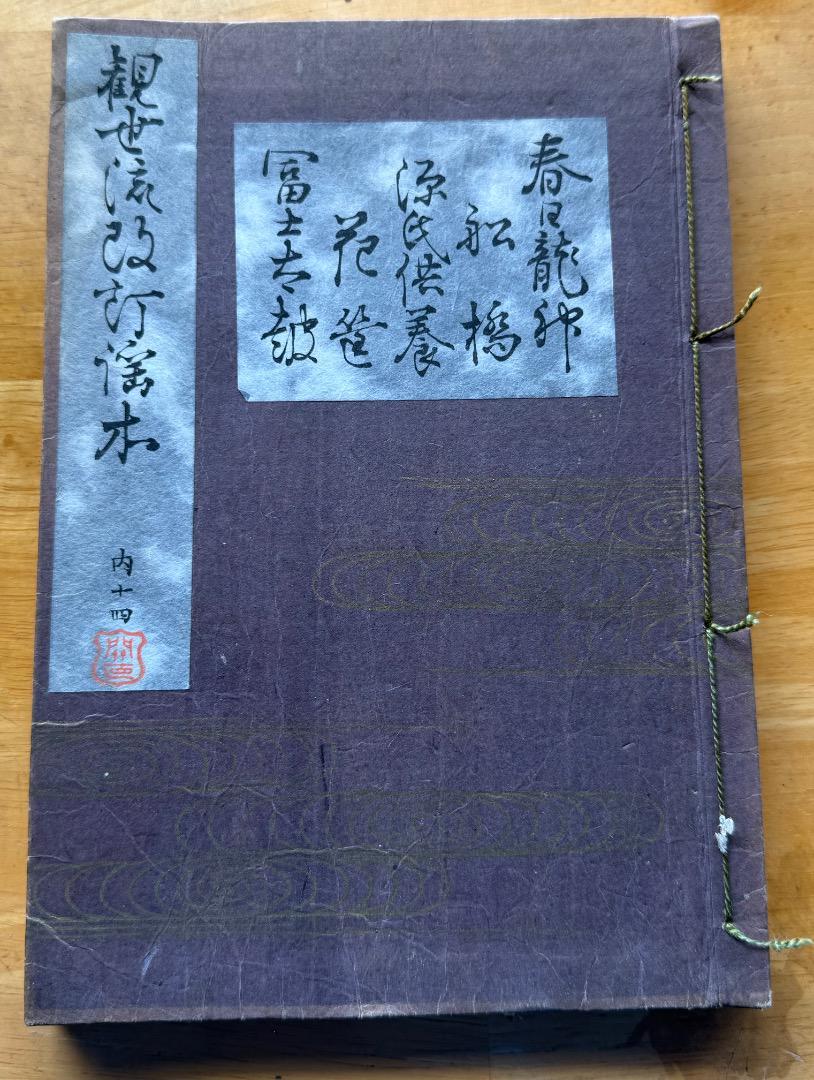 春日龍神
船橋
源氏供養
花筐
冨士太鼓
観世流改訂謡本
内十四